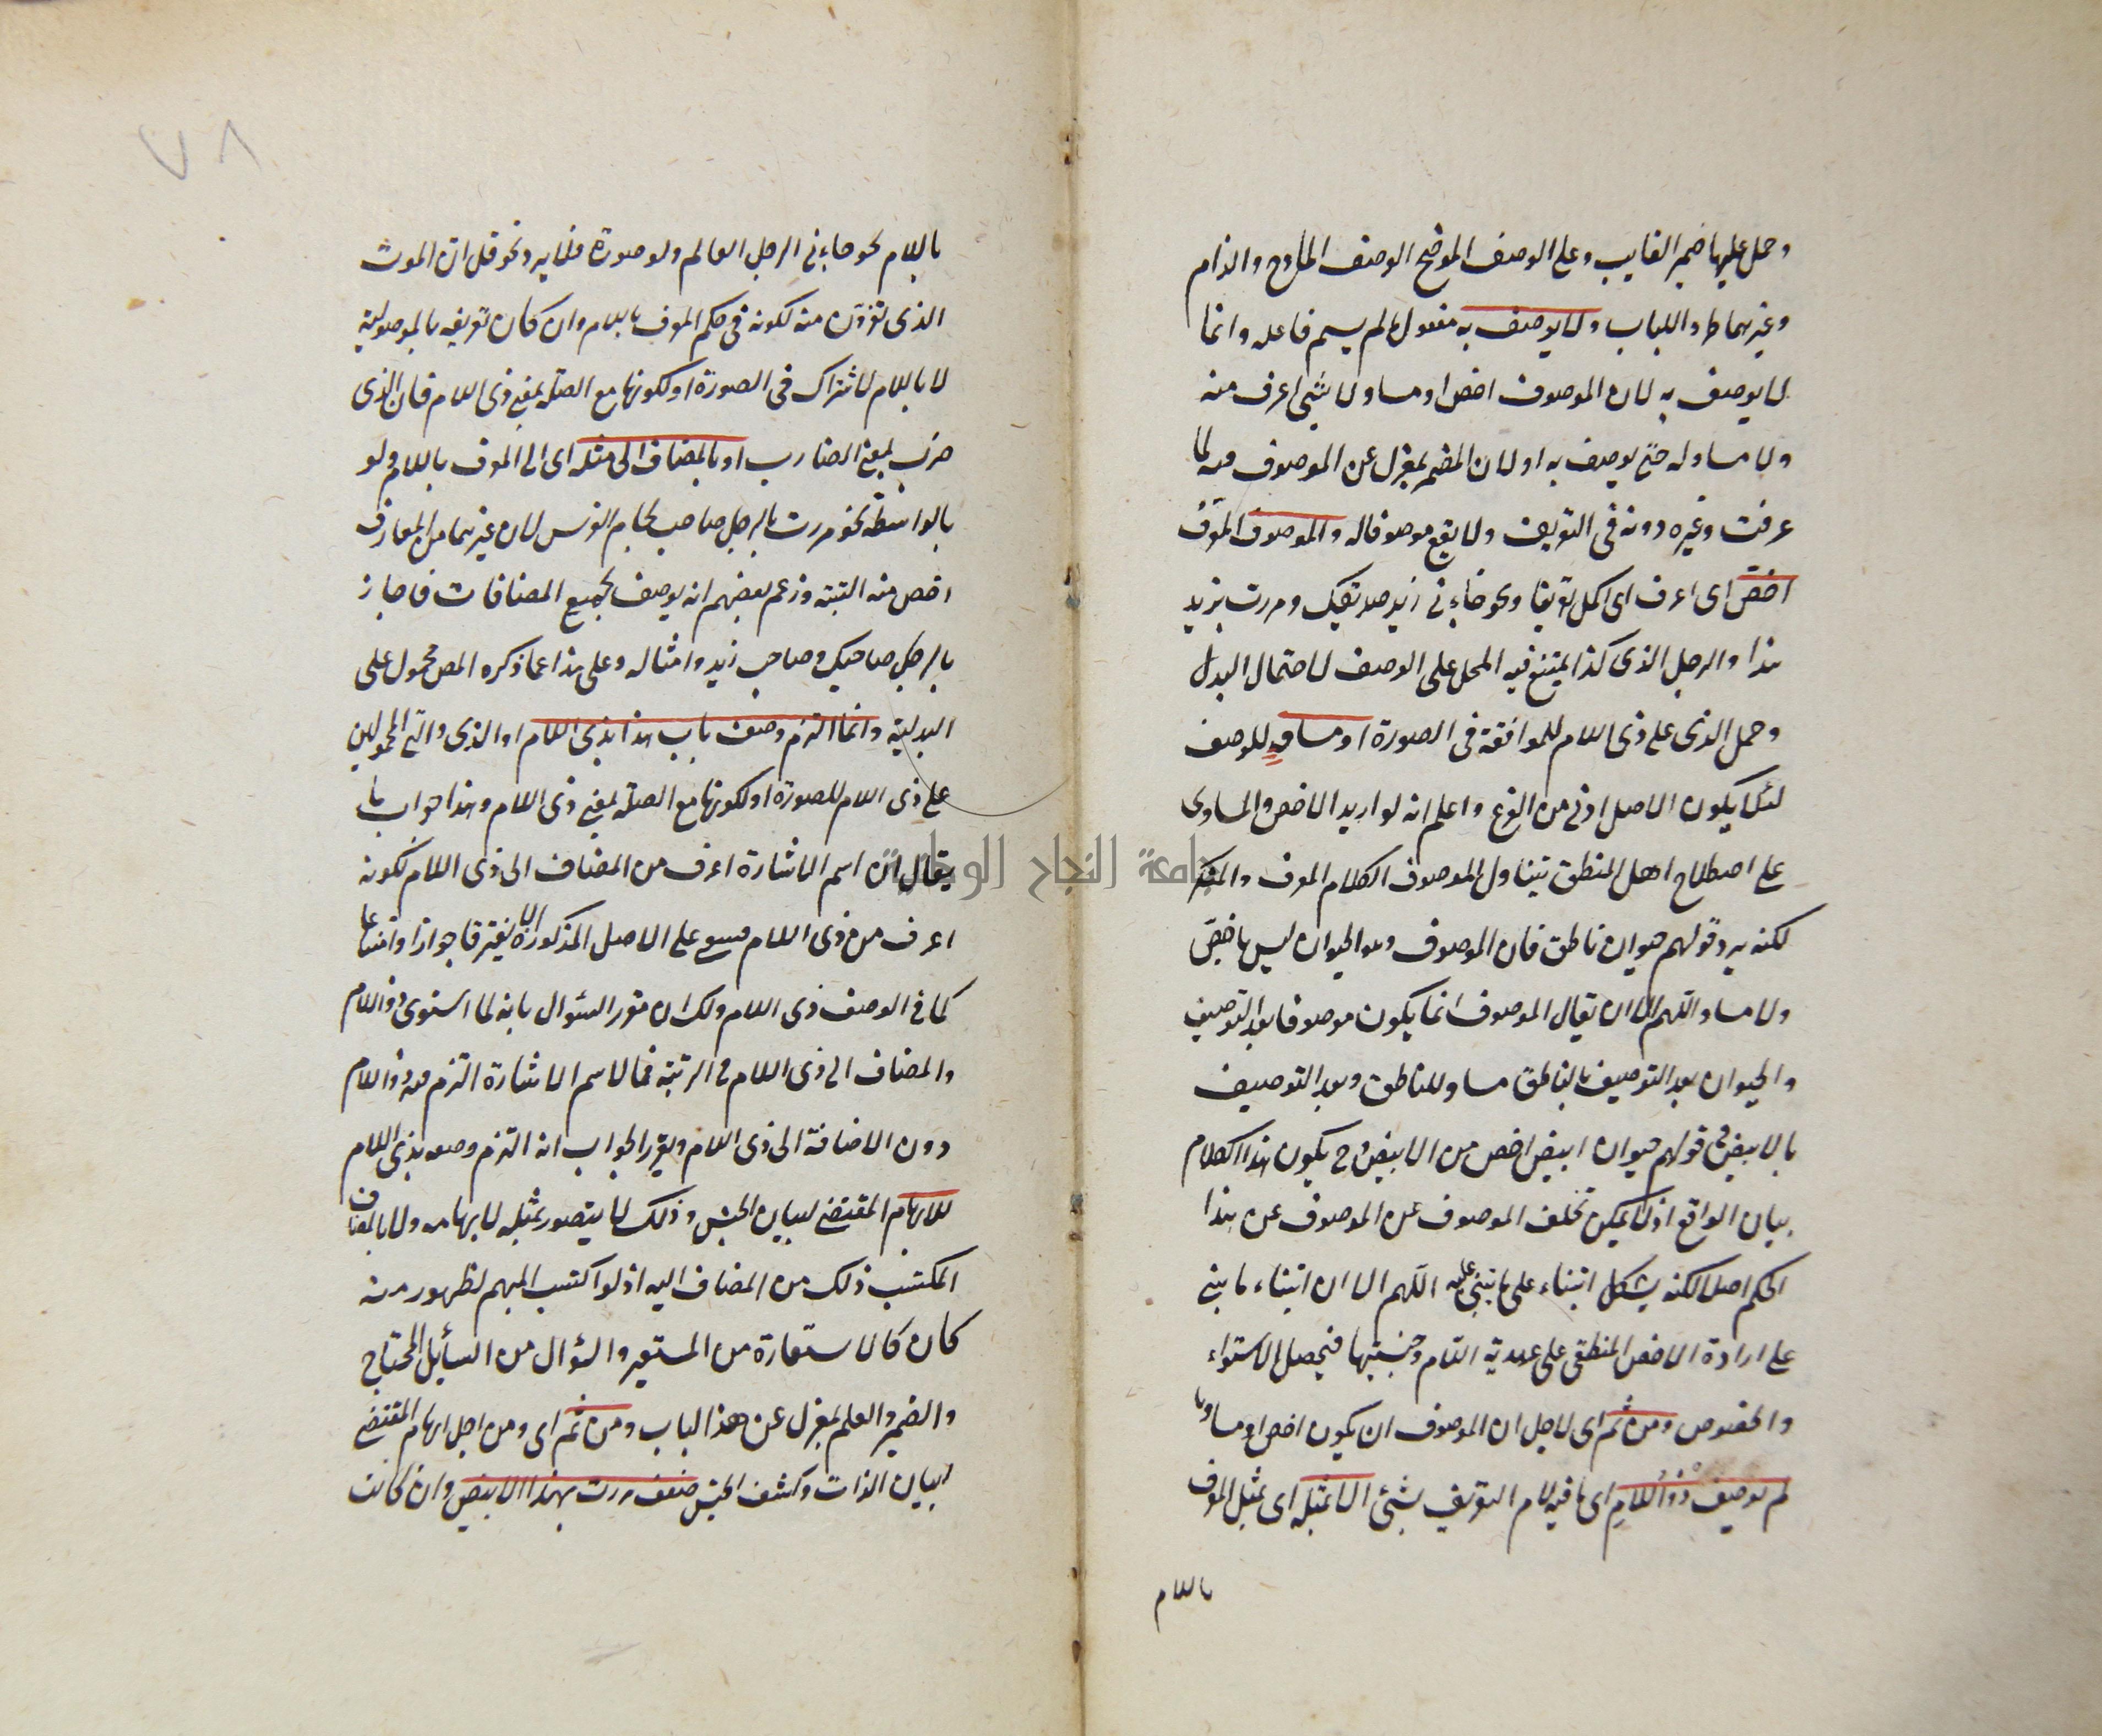 وحمل عليها ضمير الغايب وعلى الوصف الموضح الوصف المادح والذام
وغيرهما طرد اللباب ولا يوصف به مفعول ما لم يسم فاعله وانما
لا يوصف به لان الموصوف اخص او مساو ولا شئ اعرف منه
ولا مساو له حتى يوصف به او لان المضمر بمعزل عن الموصوف به لما
عرفت وغيره دونه في التعريف ولا يقع موصوفا له والموصوف المعرف
اخص اى اعرف اى اكمل تعريفا ونحو جاءنى زيد صديقك ومررت بزيد
هذا والرجل الذى كذا يمتنع فيه الحمل على الوصف لاحتمال البدل
وحمل الذى على ذى اللام للموافقة فى الصورة او مساويه للوصف
لئلا يكون الاصل ادنى من الفرع واعلم انه لو اريد الاخص والمساوى
على اصطلاح اهل المنطق يتناول الموصوف الكلام المعرف والمنكر
لكنه يرد قولهم حيوان ناطق فان الموصوف وهو الحيوان ليس باخص
ولا مساو اللهم الا ان يقال الموصوف انما يكون موصوفا بعد التوصيف
والحيوان بعد التوصيف بالناطق مساو للناطق وبعد التوصيف
بالابيض فى قولهم حيوان ابيض اخص من الابيض وح يكون هذا الكلام
بيان الواقع اذ لا يمكن تخلف الموصوف عن الموصوف عن هذا
الحكم اصلا لكنه يشكل ابتناء على ما يبتنى عليه اللهم الا ان ابتناء ما يبنى
على ارادة الاخص المنطقى على عهدية اللام وجنسيتها فيحصل الاستواء
والخصوص ومن ثم اى لاجل ان الموصوف ان يكون اخص او مساويا
لم يوصف ذو اللام اى ما فيه لام التعريف بشئ الا بمثله اى بمثل المعرف
باللام
٧٨
باللام نحو جاءنى الرجل العالم ولو صورة فلا يرد نحو قل ان الموت
الذى تفرون منه لكونه فى حكم المعرف باللام وان كان تعريفه بالموصولية
لا باللام لاشتراك فى الصورة او لكونها مع الصلة بمعنى ذى اللام فان الذى
ضرب بمعنى الضارب او بالمضاف الى مثله اى الى المعرف باللام ولو
بالواسطة نحو مررت بالرجل صاحب لجام الفرس لان غيرهما من المعارف
اخص منه البتة وزعم بعضهم انه يوصف بجميع المضافات فاجاز
بالرجل صاحبك وصاحب زيد وامثاله وعلى هذا عما ذكره المص محمول على
البدلية وانما التزم وصف باب هذا بذى اللام او الذى والتى المحمولين
على ذى اللام للصورة او لكونها مع الصلة بمعنى ذى اللام وهذا جواب ما
يقال ان اسم الاشارة اعرف من المضاف الى ذى اللام لكونه
اعرف من ذى اللام على الاصل المذكور ان لا يفترقا جوازا وامتناعا
كما فى الوصف ذى اللام ولك ان تقرر السئوال بانه لما استوى ذو اللام
والمضاف الى ذى اللام فى الرتبة فما لاسم الاشارة التزم فيه ذو اللام
دون الاضافة الى ذى اللام وتقرير الجواب انه التزم وصفه بذى اللام
للابهام المقتضى لبيان الجنس وذلك لا يتصور بمثله لابهامه ولا بالمضاف
المكتسب ذلك من المضاف اليه اذ لو اكتسب المبهم لظهور منه
كان كالاستعارة من المستعير والسئوال من السائل المحتاج
والضمير والعلم بمعزل عن هذا الباب ومن ثم اى ومن اجل ابهام المقتضى
لبيان الذات وكشف الجنس ضعف مررت بهذا الابيض وان كانت